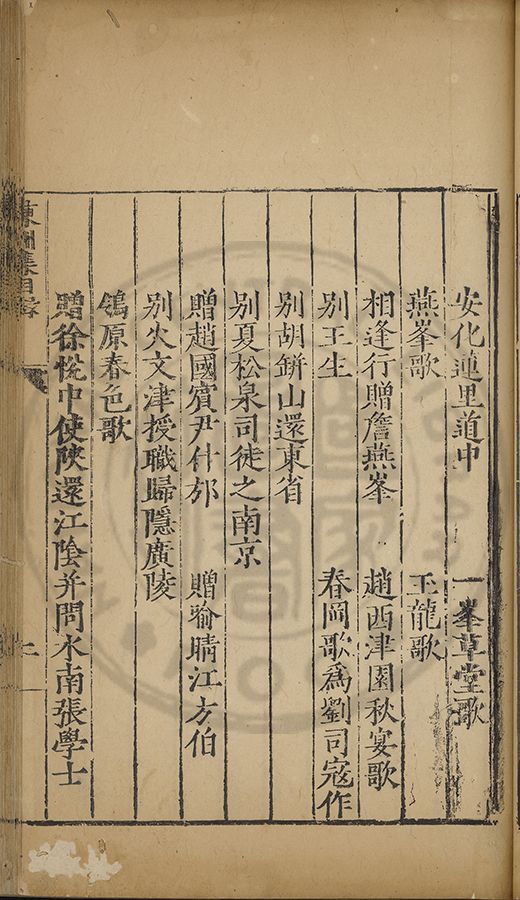 安化連里道中　一峯草堂歌
燕峯歌　玉龍歌
相逢行贈詹燕峯　趙西津園秋宴歌
别王生　春岡歌爲劉司寇作
别胡缾山還東省
别夏松泉司徒之南京
贈趙國賓尹什邡　贈喻晴江方伯
别火文津授職歸隱廣陵
鴒原春色歌
贈徐悅中使陝還江陰并問水南張學士
集目錄